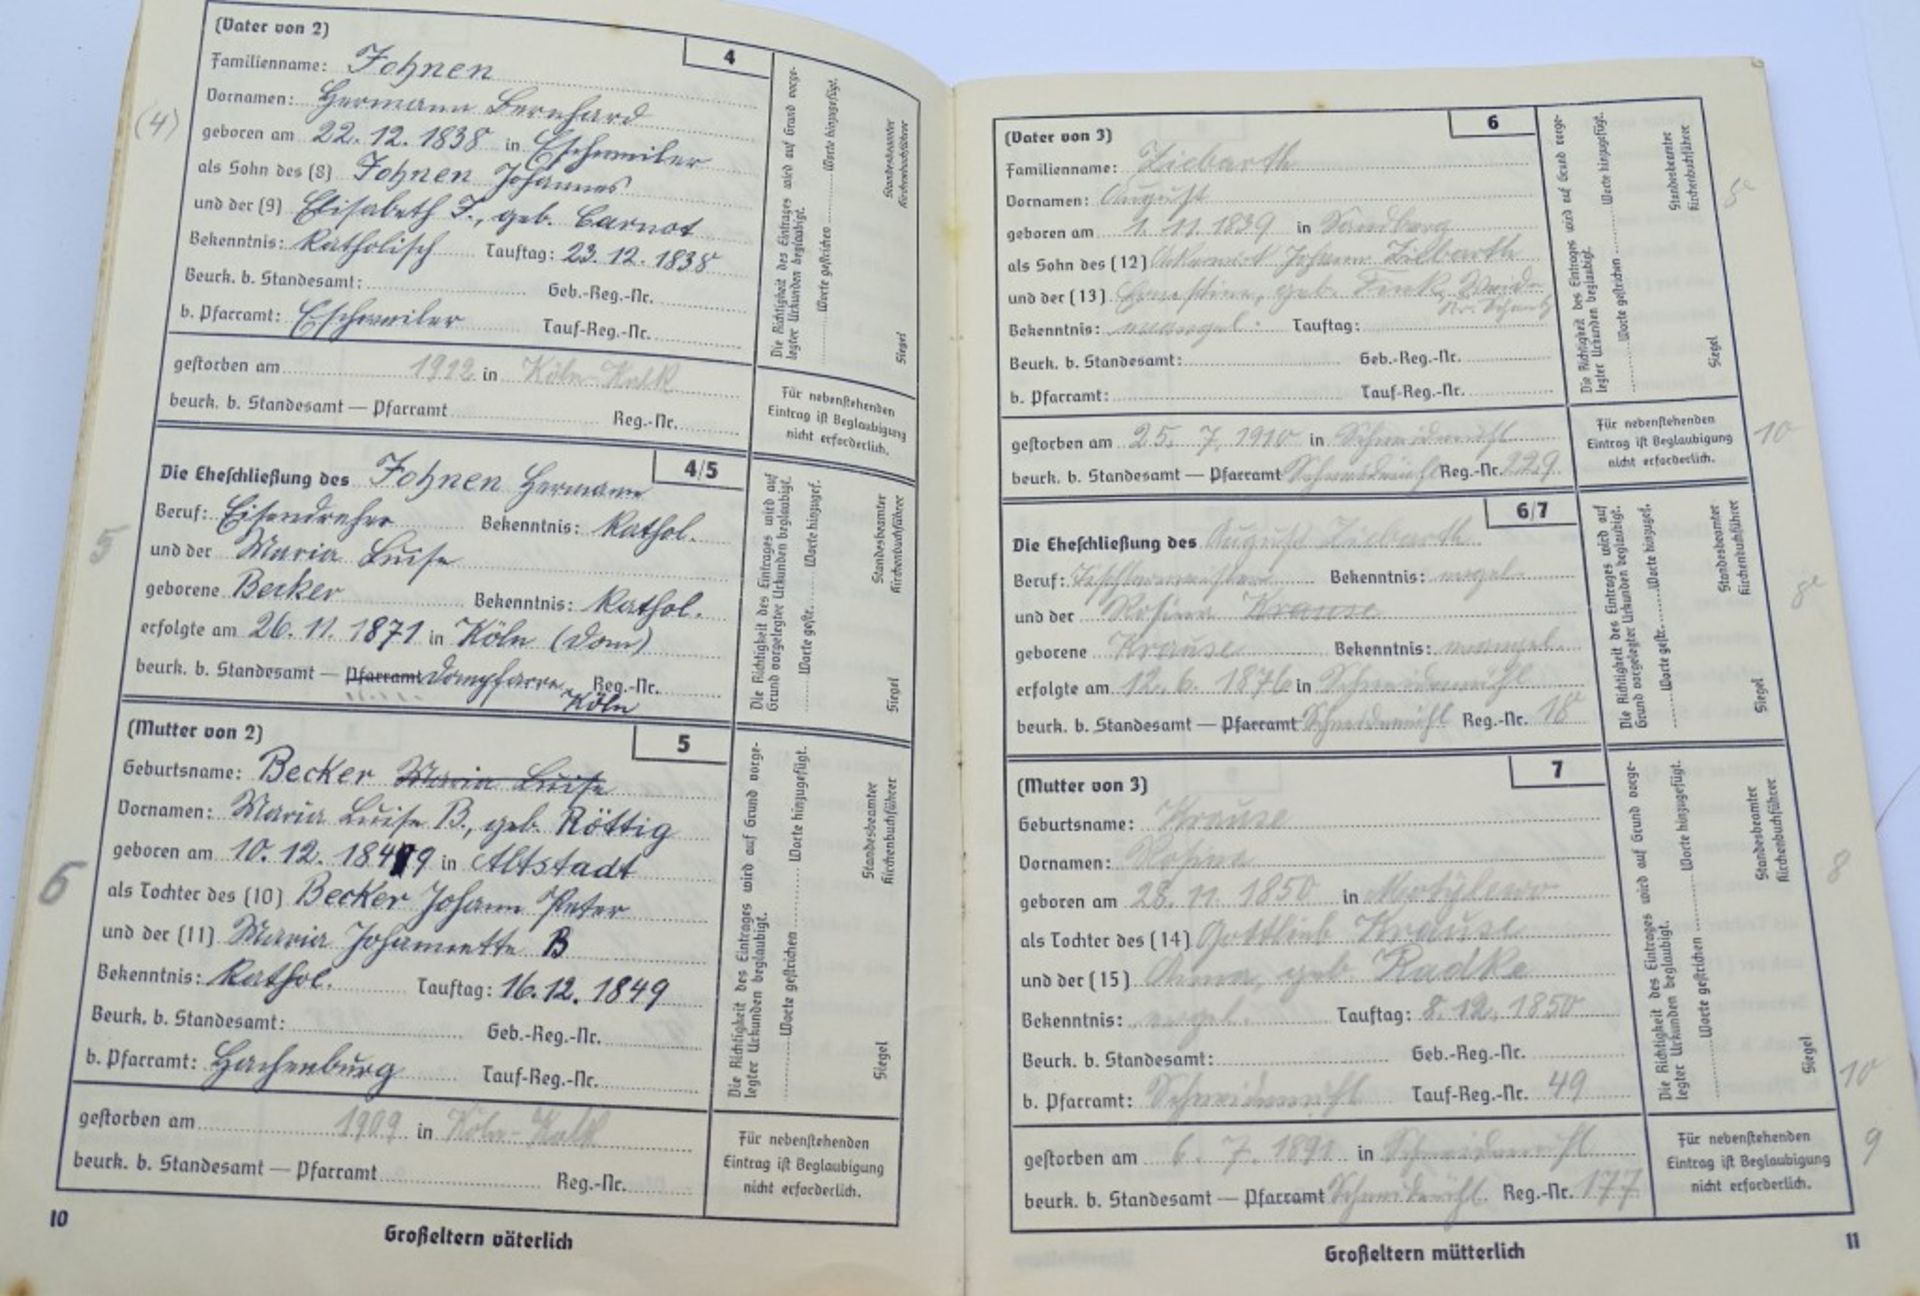 (Vater von 2)
4
Familienname: Fohnen
Vornamen: Hermann Bernhard
(4)
geboren am 22. 12. 1838 in Eschweiler
als Sohn des (8) Fohnen Johannes
und der (9) Elisabeth F., geb. Carnot
Bekenntnis: Katholisch Tauftag: 23. 12. 1838
Beurk. b. Standesamt: Geb.-Reg.-Nr.
b. Pfarramt: Eschweiler Tauf-Reg.-Nr.
Die Richtigkeit des Eintrages wird auf Grund vorge-
legter Urkunden beglaubigt.
Worte gestrichen Worte hinzugefügt.
Siegel
Standesbeamter
Kirchenbuchführer
gestorben am 1912 in Köln-Kalk
beurk. b. Standesamt — Pfarramt Reg.-Nr.
Für nebenstehenden
Eintrag ist Beglaubigung
nicht erforderlich.
4/5
Die Eheschließung des Fohnen Hermann
Beruf: Eisendreher Bekenntnis: Kathol.
5
und der Maria Luise
geborene Becker Bekenntnis: Kathol.
erfolgte am 26. 11. 1871 in Köln (Dom)
beurk. b. Standesamt — Pfarramt Dompfarre Reg.-Nr.
Köln
Die Richtigkeit des Eintrages wird auf
Grund vorgelegter Urkunden beglaubigt.
Worte gestr. Worte hinzugef.
Siegel
Standesbeamter
Kirchenbuchführer
(Mutter von 2)
5
Geburtsname: Becker Maria Luise
Vornamen: Maria Luise B., geb. Röttig
geboren am 10. 12. 1849 in Altstadt
6
als Tochter des (10) Becker Johann Peter
und der (11) Maria Johannette B
Bekenntnis: Kathol. Tauftag: 16. 12. 1849
Beurk. b. Standesamt: Geb.-Reg.-Nr.
b. Pfarramt: Hachenburg Tauf-Reg.-Nr.
Die Richtigkeit des Eintrages wird auf Grund vorge-
legter Urkunden beglaubigt.
Worte gestrichen Worte hinzugefügt.
Siegel
Standesbeamter
Kirchenbuchführer
gestorben am 1909 in Köln-Kalk
beurk. b. Standesamt — Pfarramt Reg.-Nr.
Für nebenstehenden
Eintrag ist Beglaubigung
nicht erforderlich.
10
Großeltern väterlich
(Vater von 3)
6
Familienname: Ziebarth
Vornamen: August
geboren am 1. 11. 1839 in Sandberg
als Sohn des (12) Johann Ziebarth
und der (13) Ernestine, geb. Fenk
Bekenntnis: evangel. Tauftag:
Beurk. b. Standesamt: Geb.-Reg.-Nr.
b. Pfarramt: Tauf-Reg.-Nr.
Die Richtigkeit des Eintrages wird auf Grund vorge-
legter Urkunden beglaubigt.
Worte gestrichen Worte hinzugefügt.
Siegel
Standesbeamter
Kirchenbuchführer
gestorben am 25. 7. 1910 in Schneidemühl
beurk. b. Standesamt — Pfarramt Schneidemühl Reg.-Nr. 229
Für nebenstehenden
Eintrag ist Beglaubigung
nicht erforderlich.
10
6/7
Die Eheschließung des August Ziebarth
Beruf: Tischlermeister Bekenntnis: evgel.
und der Rosina Krause
geborene Krause Bekenntnis: evangel.
erfolgte am 12. 6. 1876 in Schneidemühl
beurk. b. Standesamt — Pfarramt Schneidemühl Reg.-Nr. 18
Die Richtigkeit des Eintrages wird auf
Grund vorgelegter Urkunden beglaubigt.
Worte gestr. Worte hinzugef.
Siegel
Standesbeamter
Kirchenbuchführer
(Mutter von 3)
7
Geburtsname: Krause
Vornamen: Rosina
geboren am 28. 11. 1850 in Motylewo
8
als Tochter des (14) Gottlieb Krause
und der (15) Anna, geb. Radke
Bekenntnis: evgel. Tauftag: 8. 12. 1850
Beurk. b. Standesamt: Geb.-Reg.-Nr.
b. Pfarramt: Schneidemühl Tauf-Reg.-Nr. 49
10
Die Richtigkeit des Eintrages wird auf Grund vorge-
legter Urkunden beglaubigt.
Worte gestrichen Worte hinzugefügt.
Siegel
Standesbeamter
Kirchenbuchführer
gestorben am 6. 7. 1891 in Schneidemühl
beurk. b. Standesamt — Pfarramt Schneidemühl. Reg.-Nr. 177
Für nebenstehenden
Eintrag ist Beglaubigung
nicht erforderlich.
9
Großeltern mütterlich
11